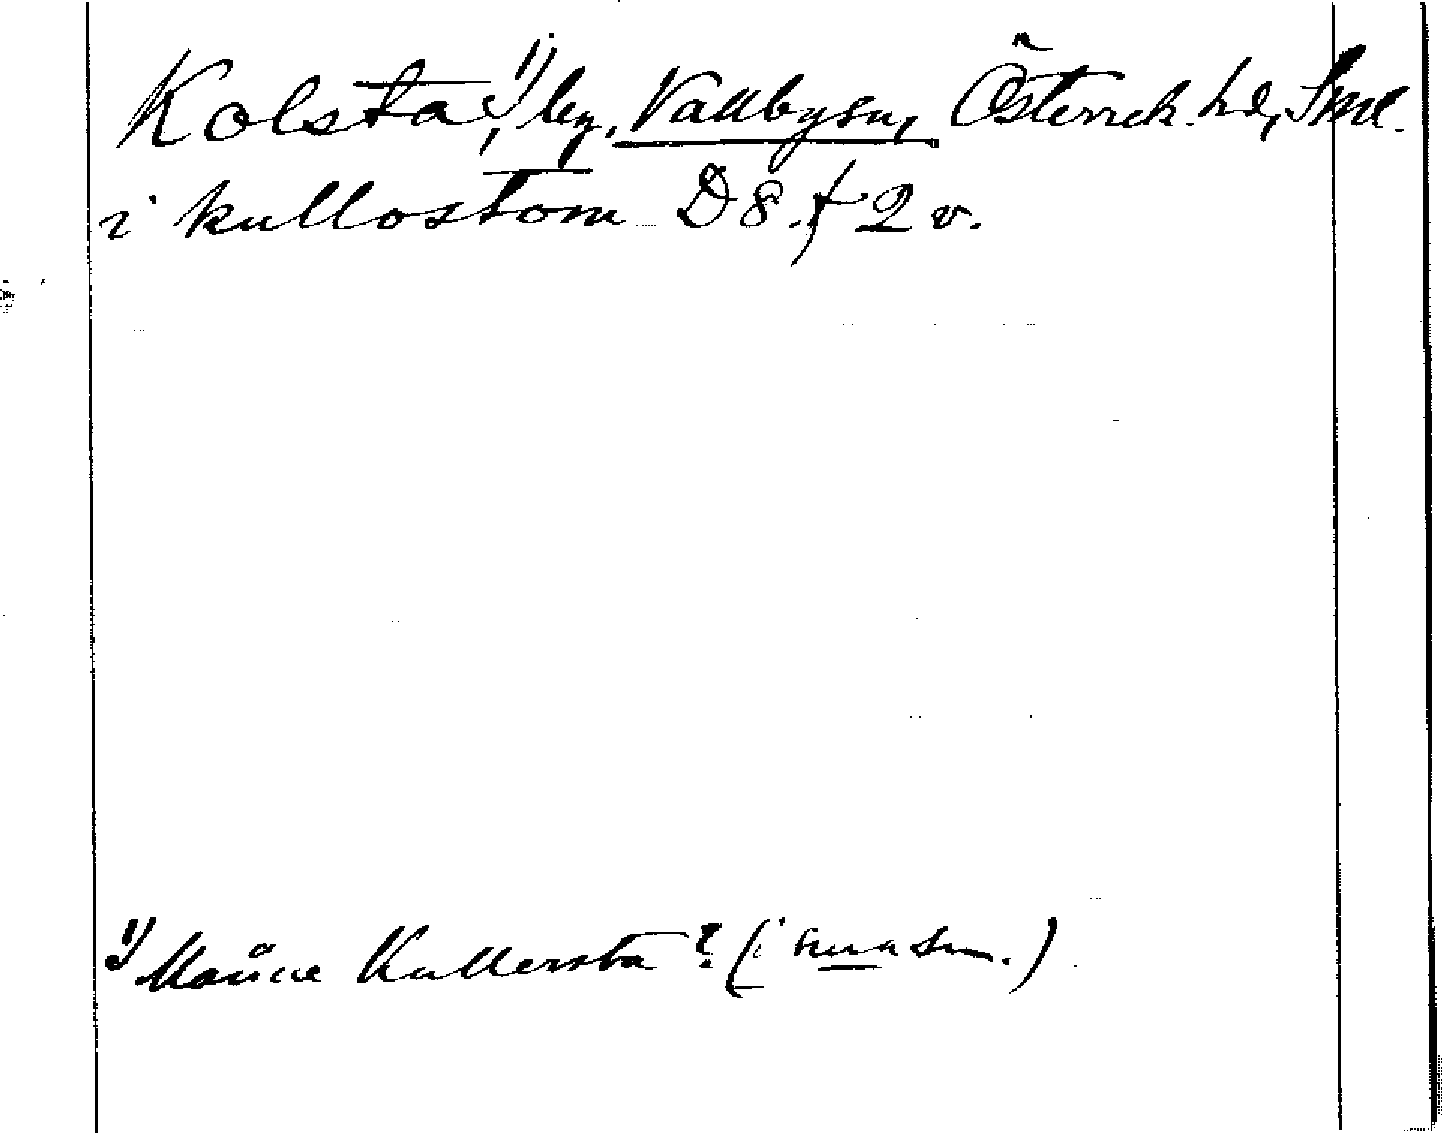 Kolsta,¹⁾ by, Vallby sn, Österrek. hd, Sml.
i kullostom D 8. f 2 v.
¹⁾ Månne Kullersta? (i samma sn.)